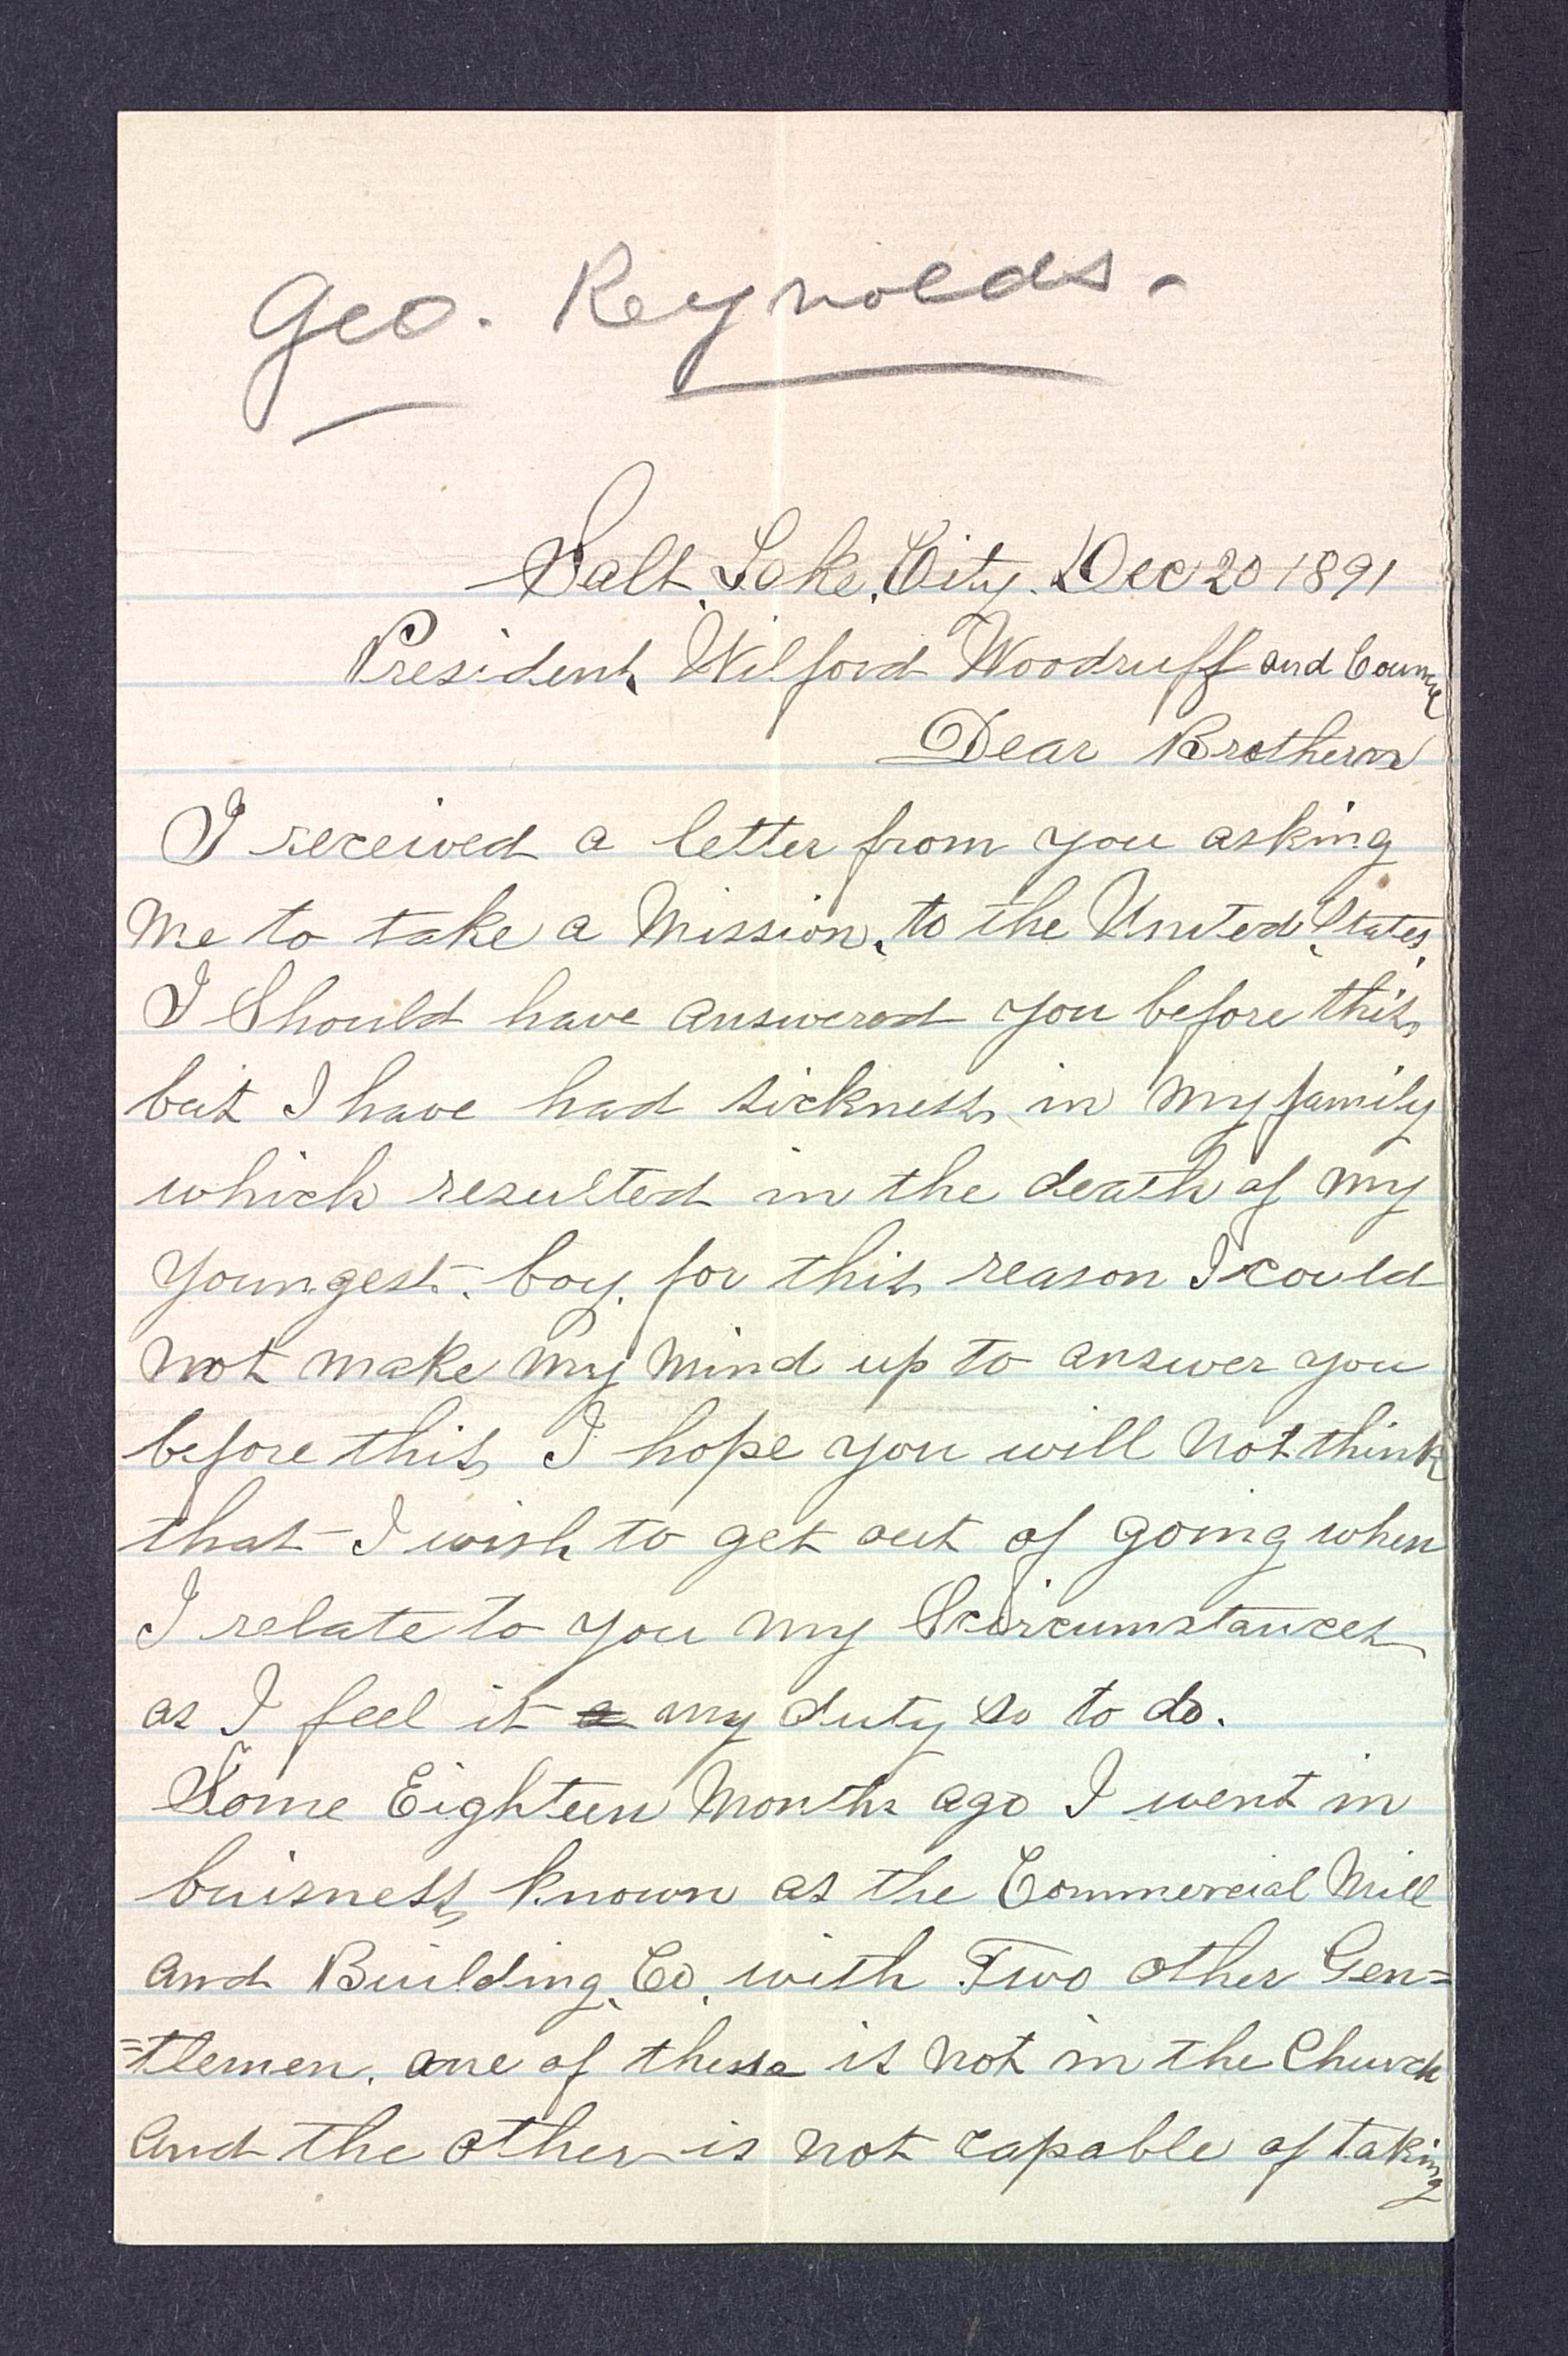 Geo. Reynolds.
Salt Lake City. Dec 20 1891
President, Wilford Woodruff and Council
Dear Brothern
I received a letter from you asking
me to take a Mission, to the United States,
I Should have answered you before this,
but I have had sickness, in my family
which resulted in the death of my
youngest. boy. for this reason I could
not make my mind up to answer you
before this, I hope you will not think
that I wish to get out of going when
I relate to you my Scircumstances
as I feel it a my duty so to do.
Some Eighteen Months ago I went in
buisness, known as the Commercial Mill
and Building, Co. with Two other Gen=
=tlemen. one of these is not in the Church
and the other is not capable of taking